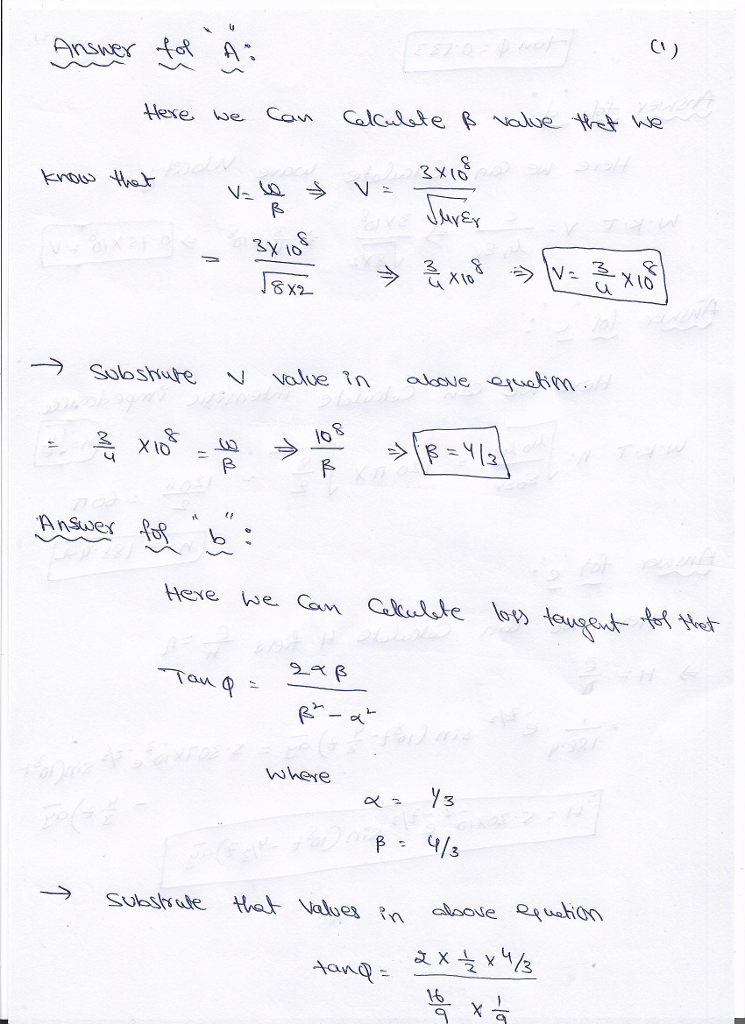 Answer for "A":
(1)
Here we can calculate β value that we
know that V = ω/β ⇒ V = 3×10^8/√μrεr
= 3×10^8/√8×2 ⇒ 3/4 ×10^8 ⇒ V = 3/4 ×10^8
→ Substrute V value in above equation.
= 3/4 ×10^8 = ω/β ⇒ 10^8/β ⇒ β = 4/3
Answer for "b":
Here we can calculate loss tangent for that
Tan φ = 2αβ/β²-α²
where
α = 1/3
β = 4/3
→ Substrate that values in above equation
tanφ = 2 × 1/2 × 4/3
16/9 × 1/9